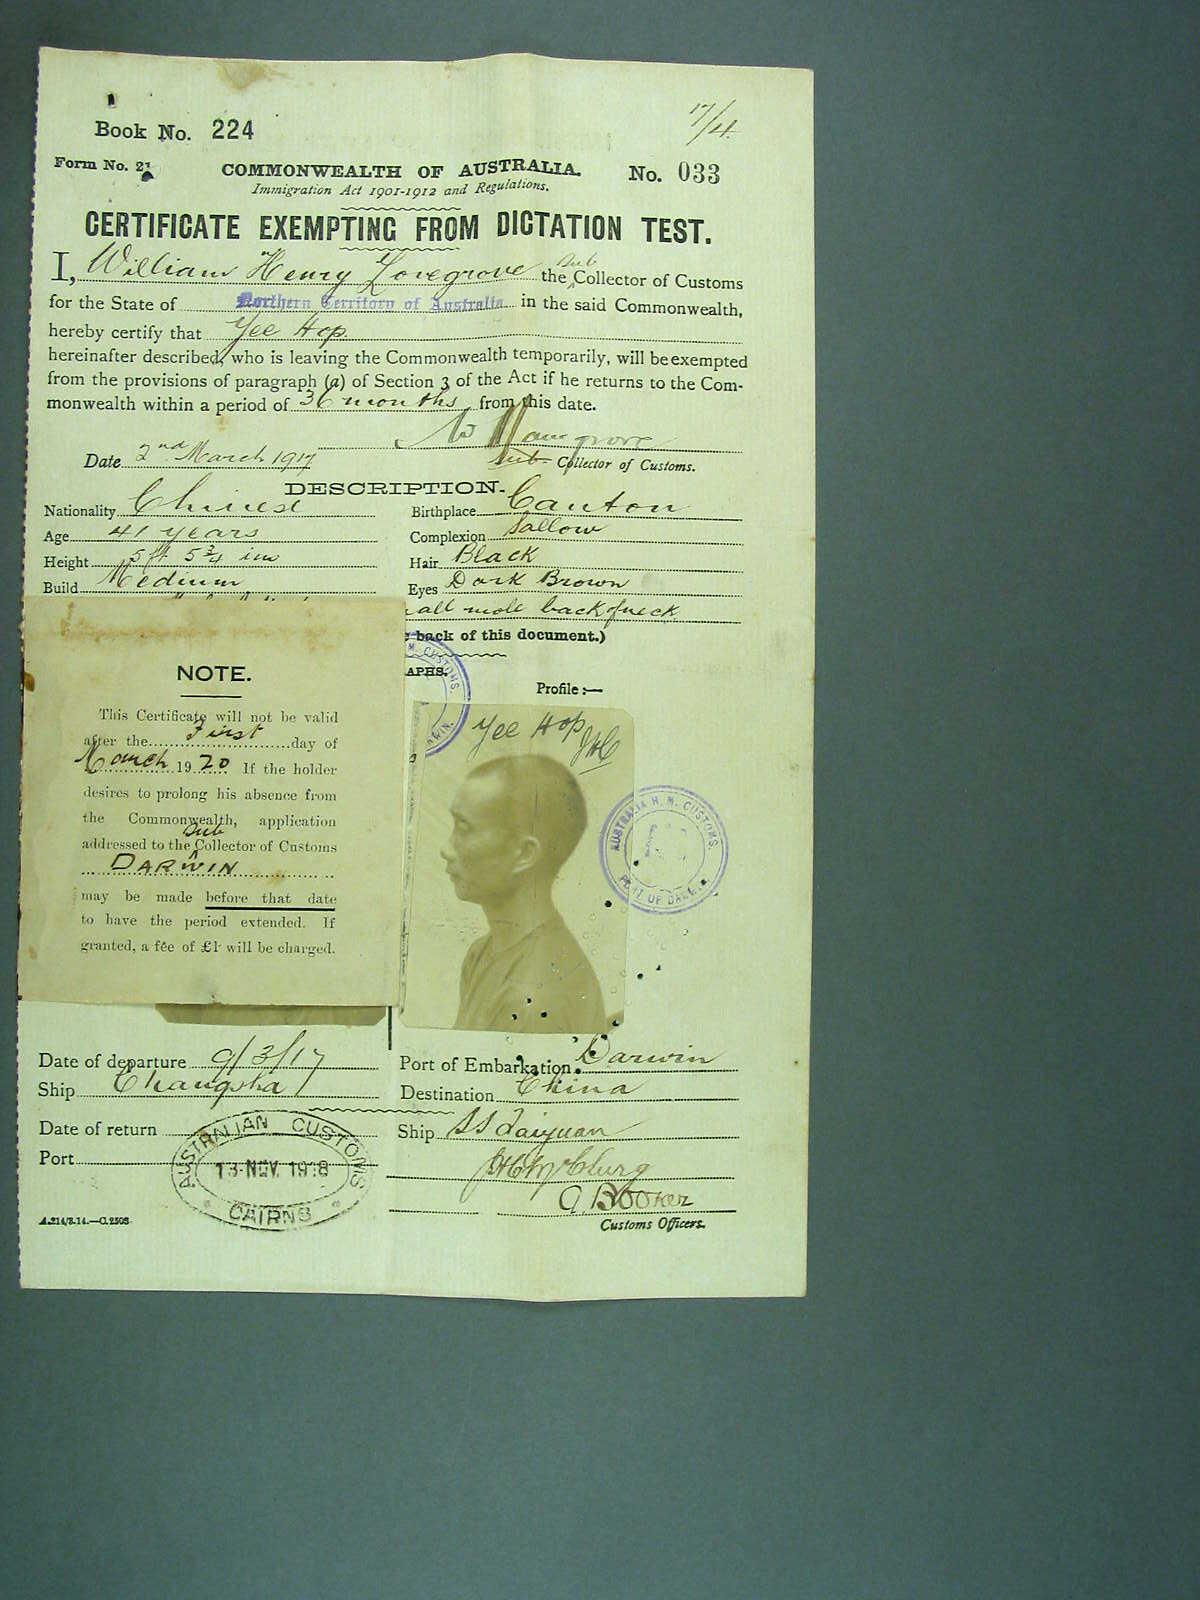 17/4.
Book No. 224
Form No. 21
COMMONWEALTH OF AUSTRALIA. No. 033
Immigration Act 1901-1912 and Regulations.
CERTIFICATE EXEMPTING FROM DICTATION TEST.
I, William Henry Lovegrove the Sub Collector of Customs
for the State of Northern Territory of Australia in the said Commonwealth,
hereby certify that Yee Hop.
hereinafter described, who is leaving the Commonwealth temporarily, will be exempted
from the provisions of paragraph (a) of Section 3 of the Act if he returns to the Com-
monwealth within a period of 36 months from this date.
Date 2nd March 1917
Sub- Collector of Customs.
DESCRIPTION.
Nationality Chinese Birthplace Canton
Age 41 years Complexion Sallow
Height 5 ft 5 3/4 ins Hair Black
Build Medium Eyes Dark Brown
all mole back of neck
back of this document.)
APHS.
Profile :—
Yee Hop
NOTE.
This Certificate will not be valid
after the First day of
March 1920 If the holder
desires to prolong his absence from
the Commonwealth, application
addressed to the Sub Collector of Customs
DARWIN
may be made before that date
to have the period extended. If
granted, a fee of £1 will be charged.
AUSTRALIA H. M. CUSTOMS.
PORT OF DARWIN
Date of departure 9/3/17 Port of Embarkation Darwin
Ship Changsha Destination China
Date of return Ship SS Taiyuan
Port J H C McClurg
AUSTRALIAN CUSTOMS
13-NOV.1918
CAIRNS
Customs Officers.
A.214/3.14.—C.2503